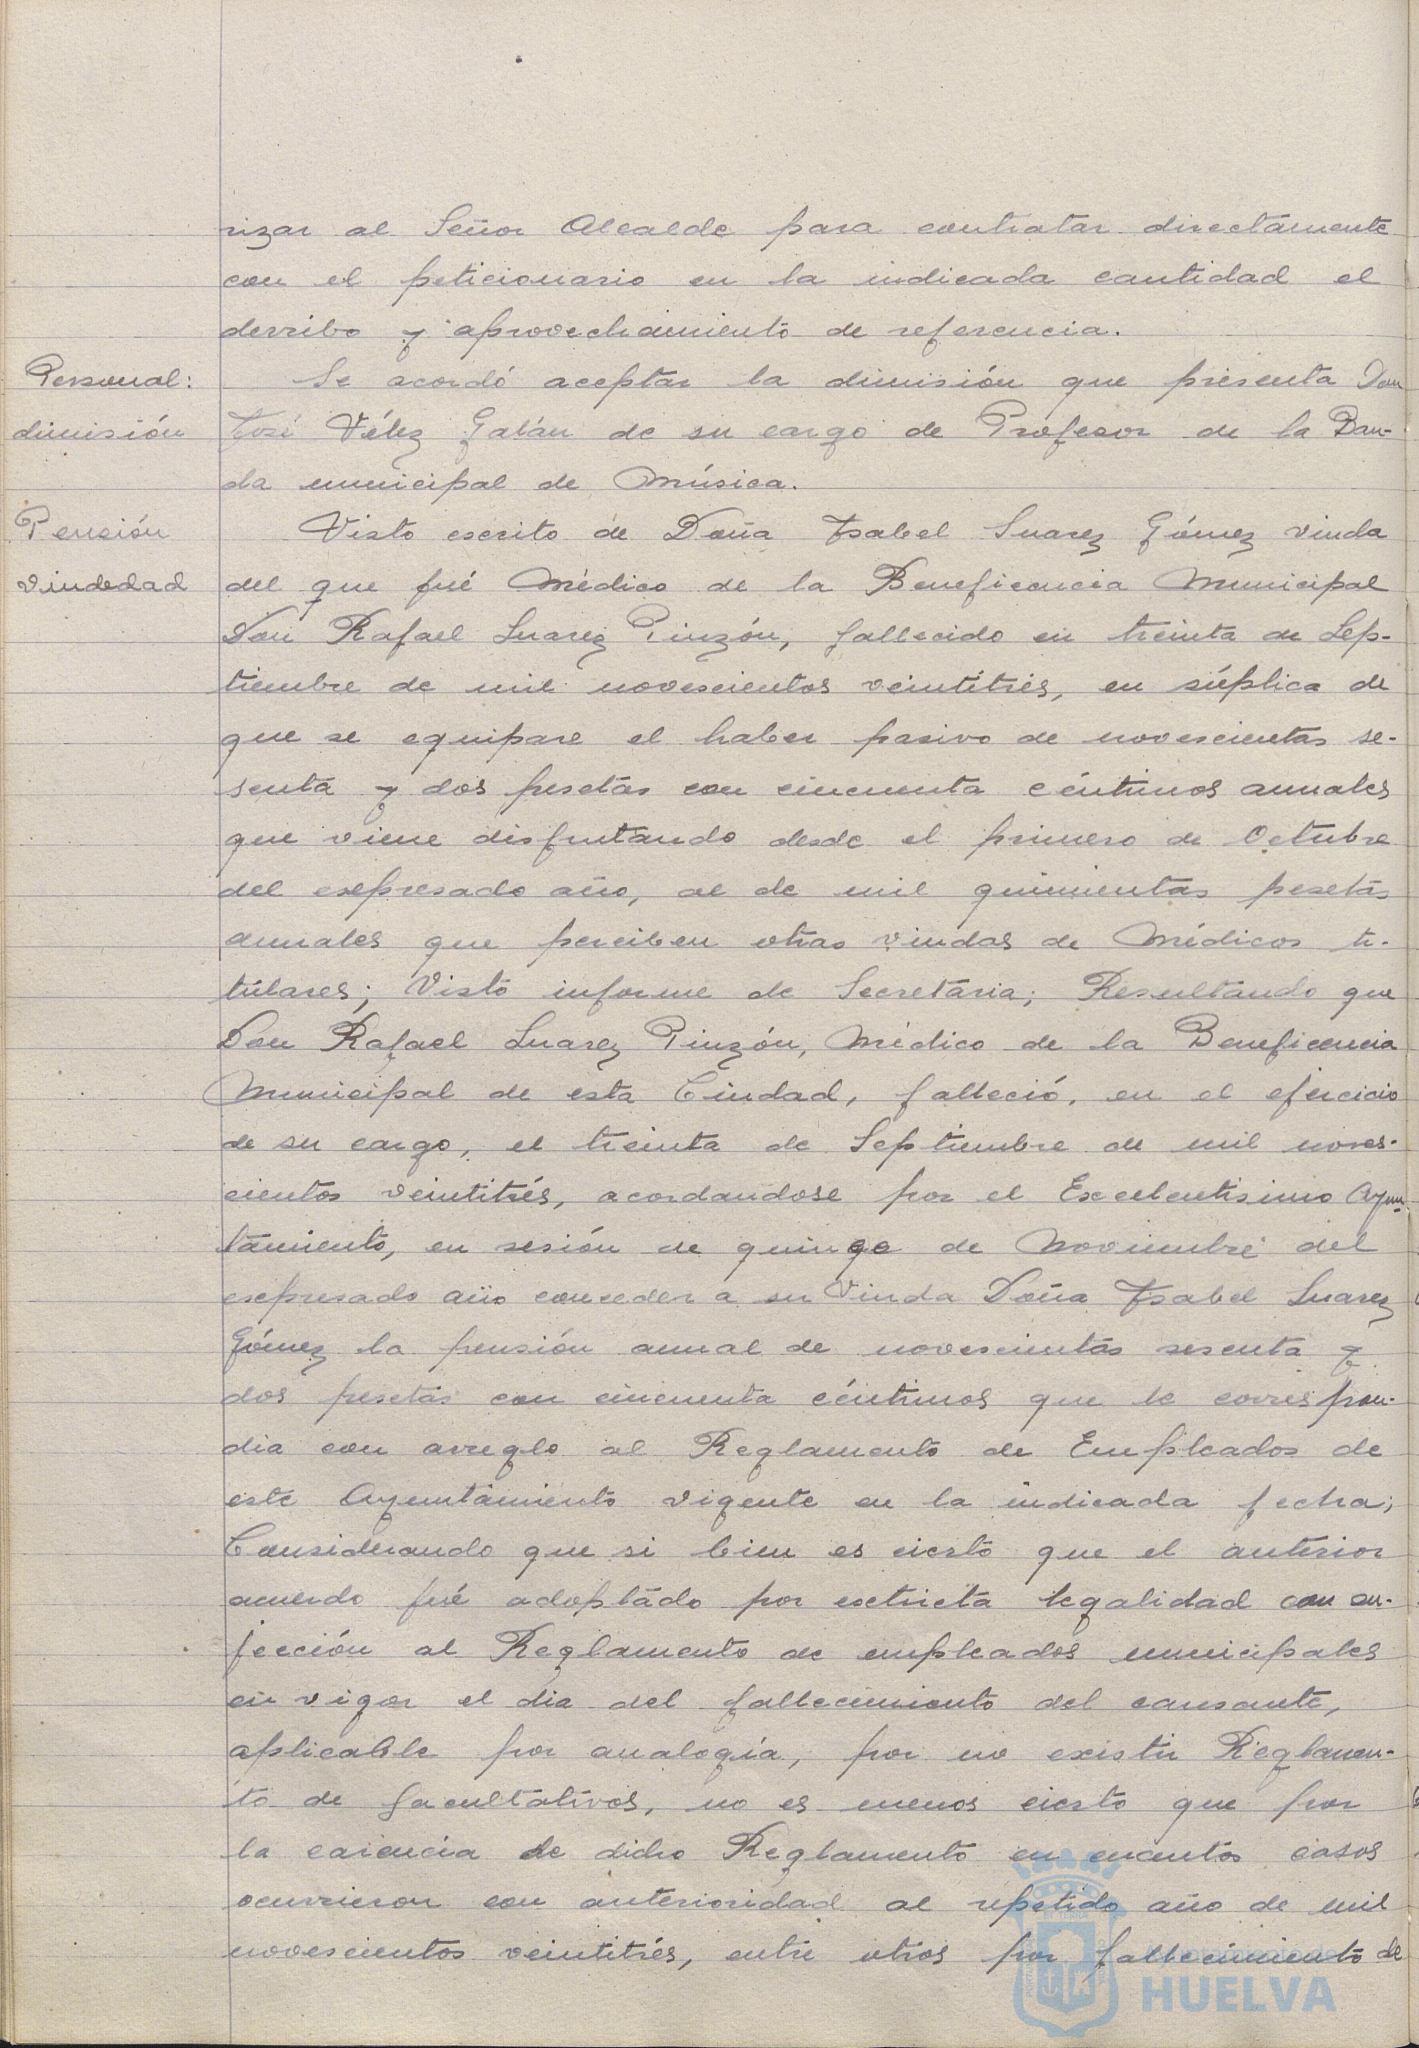 rizar al Señor Alcalde para contratar directamente
con el peticionario en la indicada cantidad el
derribo y aprovechamiento de referencia.
Personal:
dimisión
Se acordó aceptar la dimisión que presenta Don
José Vélez Galán de su cargo de Profesor de la Ban-
da municipal de Música.
Pensión
viudedad
Visto escrito de Doña Isabel Suarez Gómez viuda
del que fué Médico de la Beneficencia Municipal
Don Rafael Suarez Pinzón, fallecido en treinta de Sep-
tiembre de mil novescientos veintitrés, en súplica de
que se equipare el haber pasivo de novescientas se-
senta y dos pesetas con cincuenta céntimos anuales
que viene disfrutando desde el primero de Octubre
del expresado año, al de mil quinientas pesetas
anuales que perciben otras viudas de Médicos ti-
tulares; Visto informe de Secretaria; Resultando que
Don Rafael Suarez Pinzón, Médico de la Beneficencia
Municipal de esta Ciudad, falleció, en el ejercicio
de su cargo, el treinta de Septiembre de mil noves-
cientos veintitrés, acordandose por el Excelentisimo Ayun-
tamiento, en sesión de quince de Noviembre del
expresado año conceder a su Viuda Doña Isabel Suarez
Gómez la pensión anual de novescientas sesenta y
dos pesetas con cincuenta céntimos que le correspon-
dia con arreglo al Reglamento de Empleados de
este Ayuntamiento vigente en la indicada fecha;
Considerando que si bien es cierto que el anterior
acuerdo fué adoptado por estricta legalidad con su-
jección al Reglamento de empleados municipales
en vigor el dia del fallecimiento del causante,
aplicable por analogía, por no existir Reglamen-
to de facultativos, no es menos cierto que por
la carencia de dicho Reglamento en cuantos casos
ocurrieron con anterioridad al repetido año de mil
novescientos veintitrés, entre otros por fallecimiento de
HUELVA